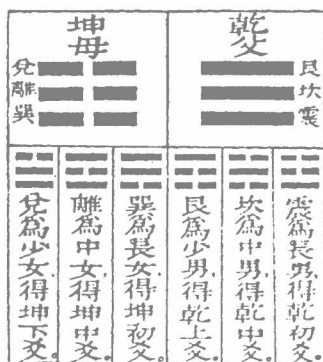 乾父
艮
坎
震
坤母
兌
離
巽
震為長男,得乾初爻。
坎為中男,得乾中爻。
艮為少男,得乾上爻。
巽為長女,得坤初爻。
離為中女,得坤中爻。
兌為少女,得坤下爻。